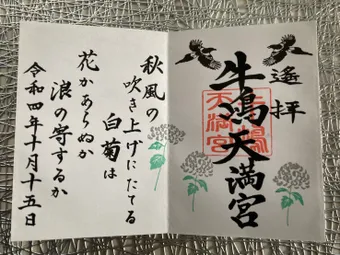 遙拝
牛鴻天満宮
秋風の
吹き上げにたてる
白菊は
花かあらぬか
浪の寄するか
令和四年十月十五日